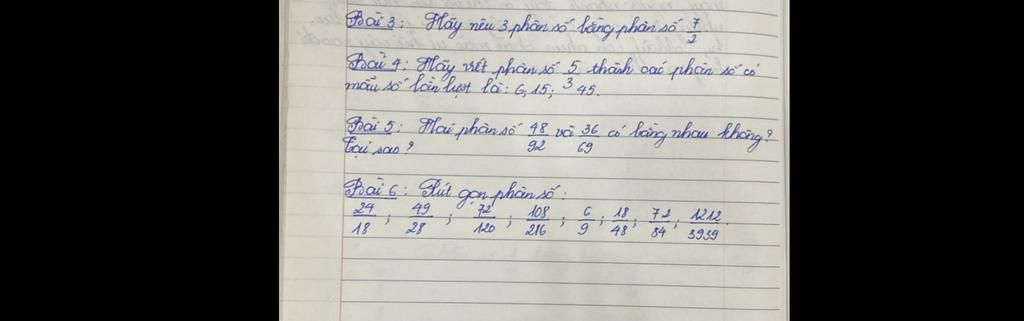 Bài 3: Hãy nêu 3 phân số bằng phân số 7/2
Bài 4: Hãy viết phân số 5/3 thành các phân số có
mẫu số lần lượt là: 6; 15; 45.
Bài 5: Hai phân số 48/92 và 36/69 có bằng nhau không?
Tại sao?
Bài 6: Rút gọn phân số:
24/18; 49/28; 72/120; 108/216; 6/9; 18/48; 72/84; 1212/3939.